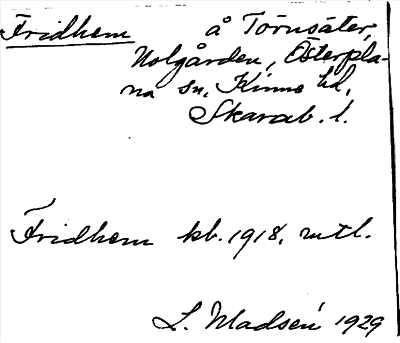 Fridhem å Törnsäter,
Nolgården, Österpla-
na sn. Kinne hd,
Skarab. l.
Fridhem kb. 1918, mtl.
L. Madsén 1929